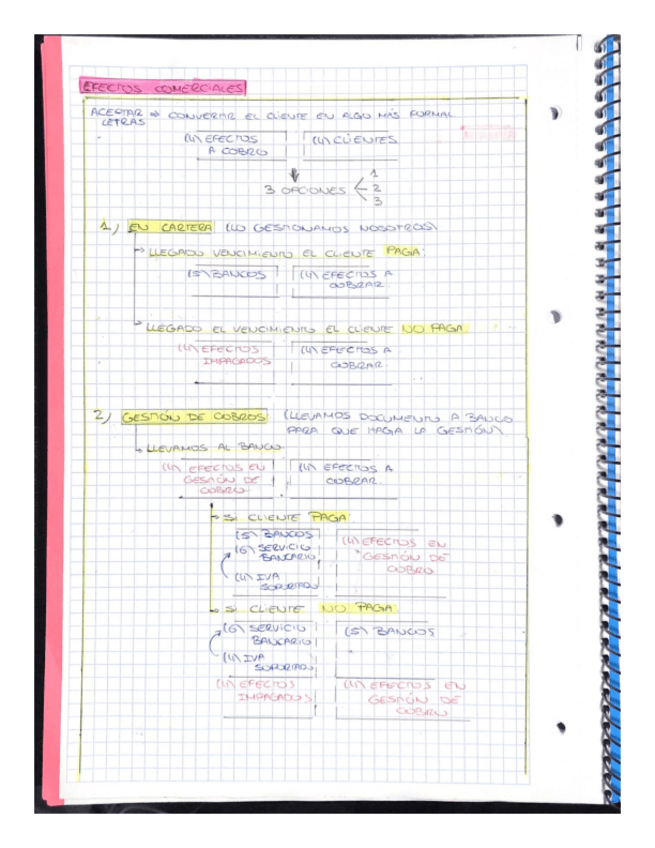 EFECTOS COMERCIALES
ACEPTAR ⇒ CONVERTIR EL CLIENTE EN ALGO MÁS FORMAL
LETRAS
(4) EFECTOS (4) CLIENTES
A COBRO
3 OPCIONES
1
2
3
1) EN CARTERA (LO GESTIONAMOS NOSOTROS)
LLEGADO VENCIMIENTO EL CLIENTE PAGA:
(5) BANCOS (4) EFECTOS A
COBRAR
LLEGADO EL VENCIMIENTO EL CLIENTE NO PAGA.
(4) EFECTOS (4) EFECTOS A
IMPAGADOS COBRAR
2) GESTIÓN DE COBROS (LLEVAMOS DOCUMENTO A BANCO
PARA QUE HAGA LA GESTIÓN)
LLEVAMOS AL BANCO
(4) EFECTOS EN (4) EFECTOS A
GESTIÓN DE COBRAR
COBRO
SI CLIENTE PAGA:
(5) BANCOS (4) EFECTOS EN
(6) SERVICIO GESTIÓN DE
BANCARIO COBRO
(4) IVA
SOPORTADO
SI CLIENTE NO PAGA:
(6) SERVICIO (5) BANCOS
BANCARIO
(4) IVA
SOPORTADO
(4) EFECTOS (4) EFECTOS EN
IMPAGADOS GESTIÓN DE
COBRO